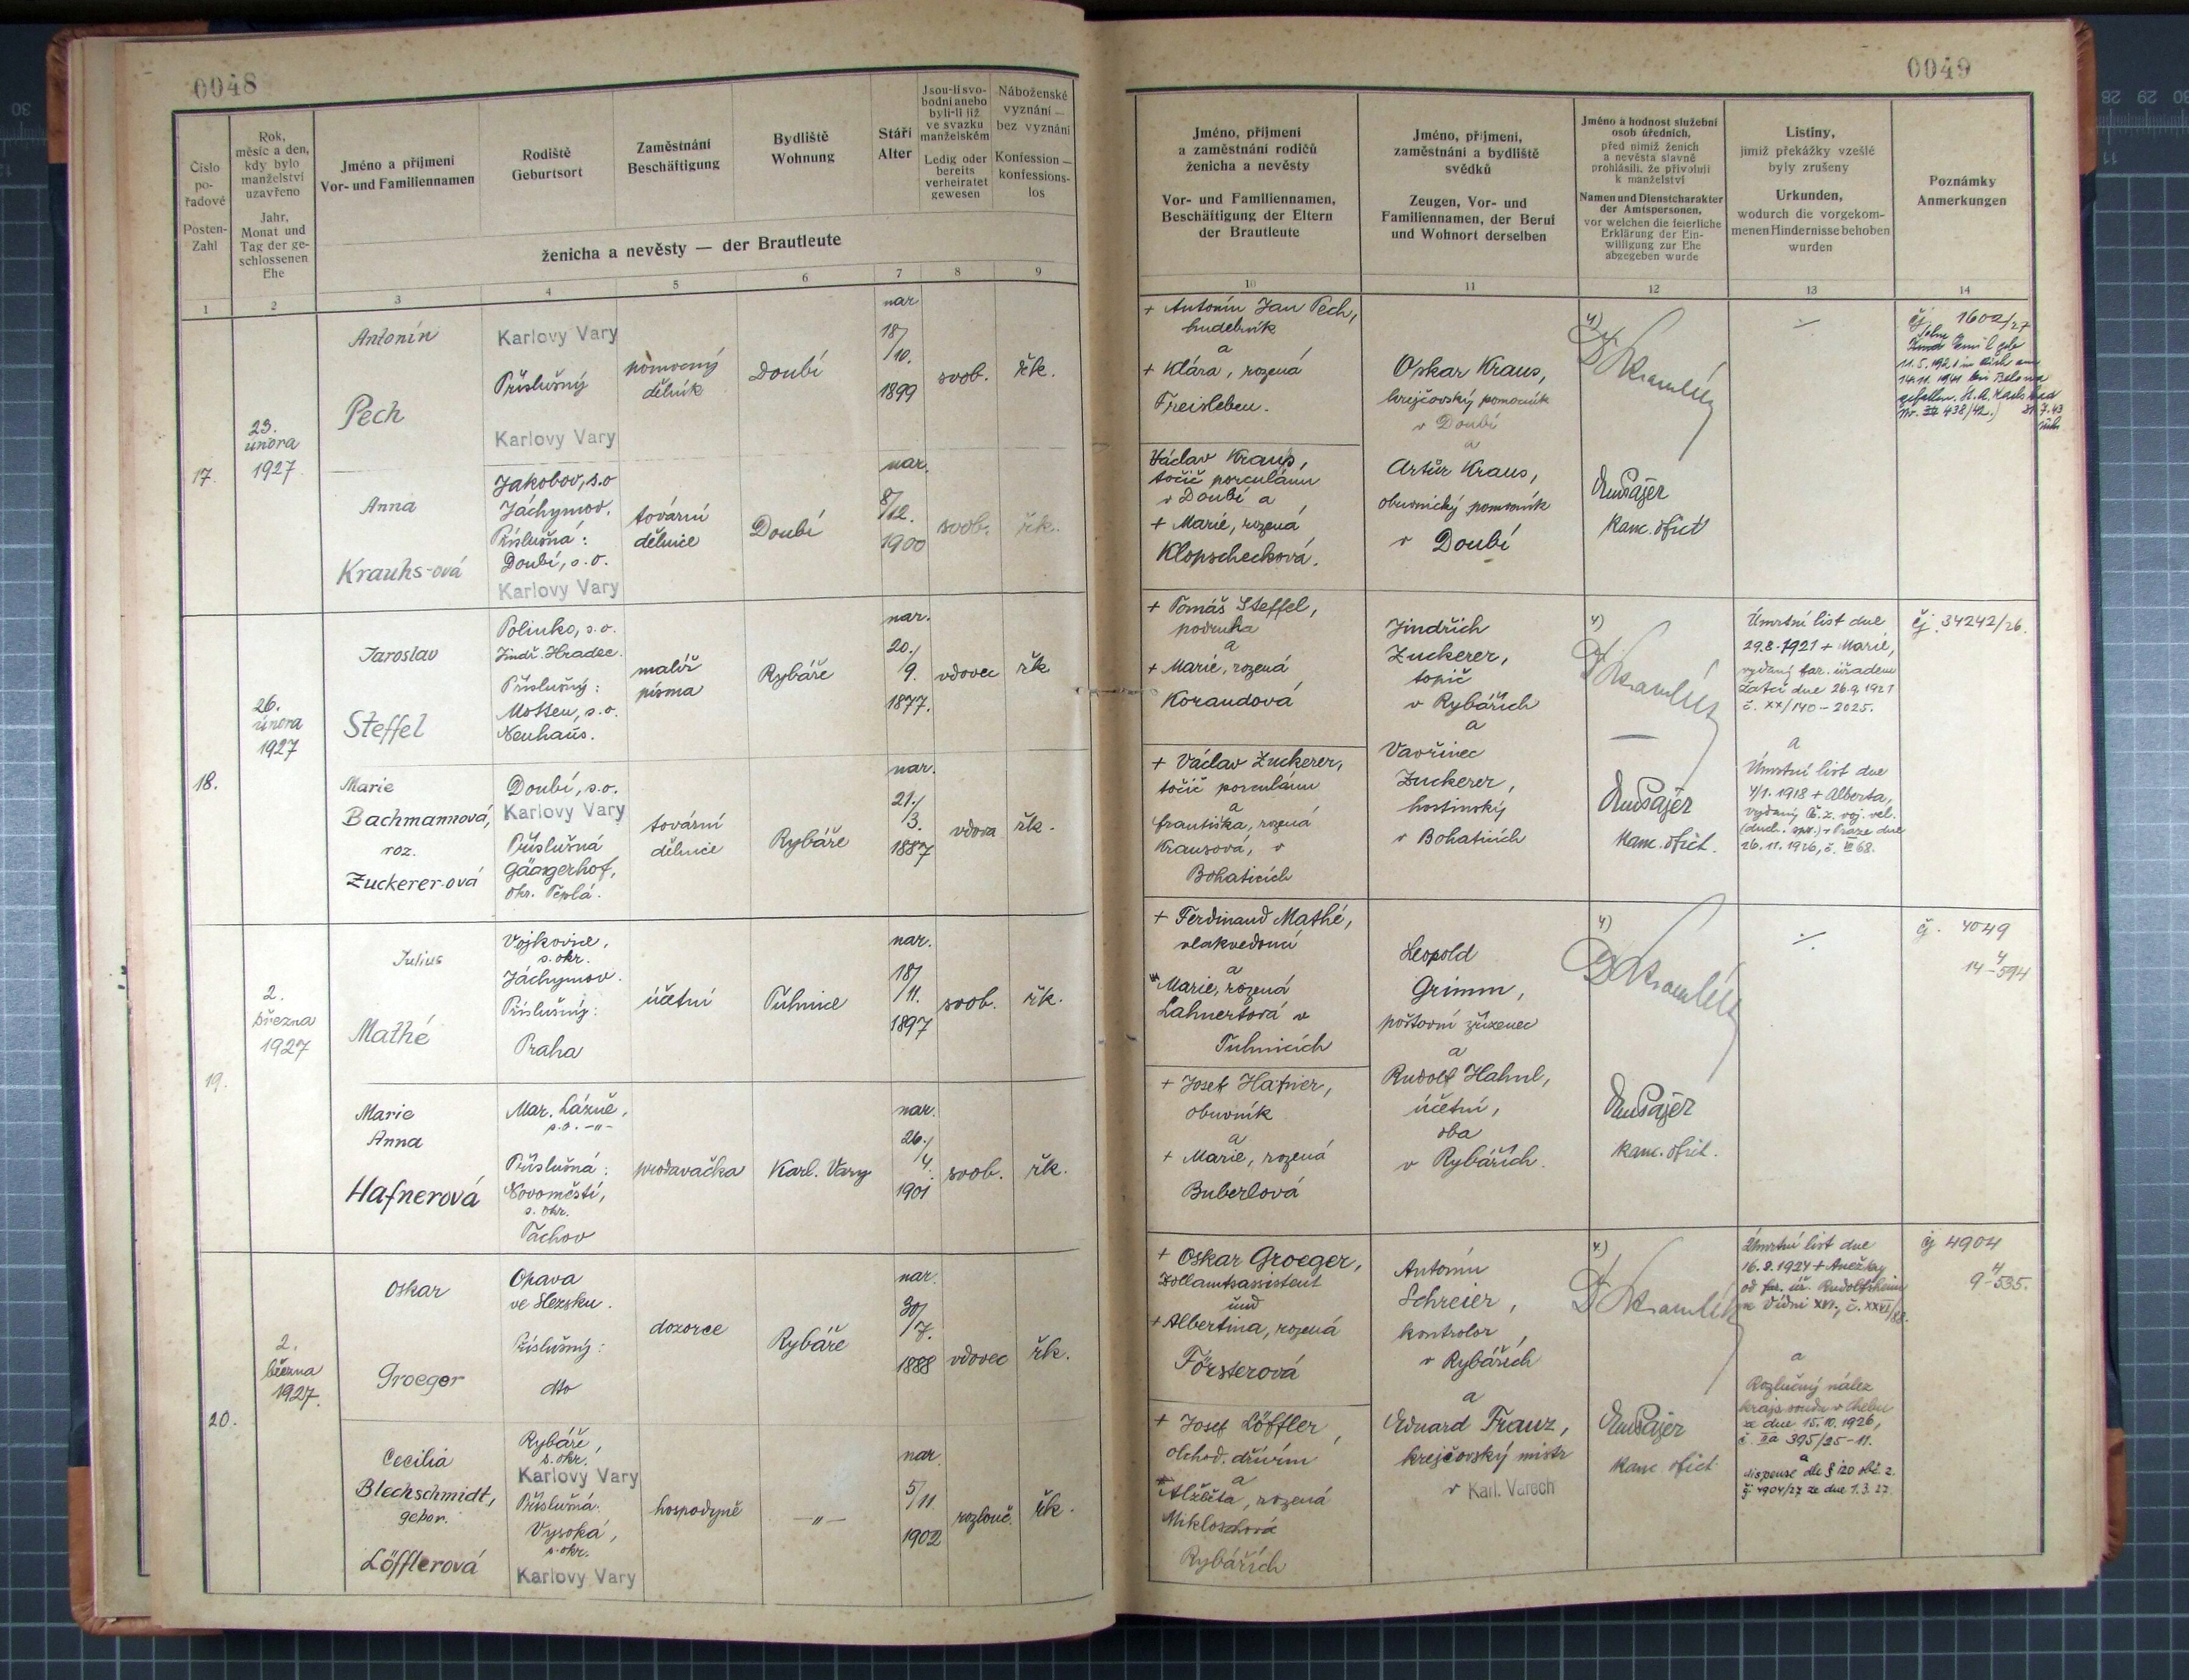 0048
Číslo
po-
řadové
Posten-
Zahl
Rok,
měsíc a den,
kdy bylo
manželství
uzavřeno
Jahr,
Monat und
Tag der ge-
schlossenen
Ehe
Jméno a příjmení
Vor- und Familiennamen
Rodiště
Geburtsort
Zaměstnání
Beschäftigung
Bydliště
Wohnung
Stáří
Alter
Jsou-li svo-
bodni anebo
byli-li již
ve svazku
manželském
Ledig oder
bereits
verheiratet
gewesen
Náboženské
vyznání —
bez vyznání
Konfession —
konfessions-
los
ženicha a nevěsty — der Brautleute
1 2 3 4 5 6 7 8 9
17.
23.
února
1927
Antonín
Pech
Karlovy Vary
Příslušný
Karlovy Vary
pomocný
dělník
Doubí
nar
18/
/10.
1899
svob.
řk.
Anna
Krauhs-ová
Jakobov, s.o
Jáchymov.
Příslušná:
Doubí, s.o.
Karlovy Vary
tovární
dělnice
Doubí
nar.
8/
/12.
1900
svob.
řk.
18.
26.
února
1927
Jaroslav
Steffel
Polinko, s.o.
Jindř. Hradec.
Příslušný:
Motten, s.o.
Neuhaus.
malíř
písma
Rybáře
nar.
20./
9.
1877.
vdovec
řk
Marie
Bachmannová,
roz.
Zuckerer-ová
Doubí, s.o.
Karlovy Vary
Příslušná
Gängerhof,
okr. Teplá.
tovární
dělnice
Rybáře
nar.
21./
/3.
1887
vdova
řk.
19.
2.
března
1927
Julius
Mathé
Vojkovice,
s. okr.
Jáchymov.
Příslušný:
Praha
účetní
Tuhnice
nar.
18/
/11.
1897
svob.
řk.
Marie
Anna
Hafnerová
Mar. Lázně,
s.o. -"-
Příslušná:
Novoměstí,
s. okr.
Tachov
prodavačka
Karl. Vary
nar.
26./
/4.
1901
svob.
řk.
20.
2.
března
1927.
Oskar
Groeger
Opava
ve Slezsku.
Příslušný:
dto
dozorce
Rybáře
nar.
30/
/7.
1888
vdovec
řk.
Cecilia
Blechschmidt,
gebor.
Löfflerová
Rybáře,
s. okr.
Karlovy Vary
Příslušná:
Vysoká,
s. okr.
Karlovy Vary
hospodyně
-"-
nar.
5/
/11
1902
rozlouč.
řk.
0049
Jméno, příjmení
a zaměstnání rodičů
ženicha a nevěsty
Vor- und Familiennamen,
Beschäftigung der Eltern
der Brautleute
Jméno, příjmení,
zaměstnání a bydliště
svědků
Zeugen, Vor- und
Familiennamen, der Beruf
und Wohnort derselben
Jméno a hodnost služební
osob úředních,
před nimiž ženich
a nevěsta slavně
prohlásili, že přivolují
k manželství
Namen und Dienstcharakter
der Amtspersonen,
vor welchen die feierliche
Erklärung der Ein-
willigung zur Ehe
abgegeben wurde
Listiny,
jimiž překážky vzešlé
byly zrušeny
Urkunden,
wodurch die vorgekom-
menen Hindernisse behoben
wurden
Poznámky
Anmerkungen
10 11 12 13 14
+ Antonín Jan Pech,
hudebník
a
+ Klára, rozená
Freisleben.
Václav Kraus,
točič porculánu
v Doubí a
+ Marie, rozená
Klopschecková.
Oskar Kraus,
krejčovský pomocník
v Doubí
a
Artur Kraus,
obuvnický pomocník
v Doubí
4)
kanc. ofict
čj. 1602/27
11.5.1921 in
14.11.1941 bei
gefallen. St. A.
Nr. 438/42.) 21.7.43
+ Tomáš Steffel,
podruh
a
+ Marie, rozená
Korandová
+ Václav Zuckerer,
točič porculánu
a
Františka, rozená
Krausová, v
Bohaticích
Jindřich
Zuckerer,
topič
v Rybářích
a
Vavřinec
Zuckerer,
hostinský
v Bohaticích
4)
kanc. ofict.
Úmrtní list dne
29.8.1921 + Marie,
vydaný far. úřadem
Žatci dne 26.9.1921
č. xx/140-2025.
a
Úmrtní list dne
4/1. 1918 + Alberta,
vydaný voj. vel.
v Praze dne
26.11.1926, č. 68.
čj. 34242/26.
+ Ferdinand Mathé,
vlakvedoucí
a
Marie, rozená
Lahnertová v
Tuhnicích
+ Josef Hafner,
obuvník
a
+ Marie, rozená
Buberlová
Leopold
Grimm,
poštovní zřízenec
a
Rudolf Hahnl,
účetní,
oba
v Rybářích.
4)
kanc. ofict.
čj. 4049
4
14-594
+ Oskar Groeger,
Zollamtsassistent
und
+ Albertina, rozená
Försterová
+ Josef Löffler,
obchod. dřívím
a
Alžběta, rozená
Mikloschová
Rybářích
Antonín
Schreier,
kontrolor,
v Rybářích
a
Eduard Franz,
krejčovský mistr
v Karl. Varech
4)
kanc. ofict
Úmrtní list dne
16.8.1924 + Anežky
od far. úř. Rudolfsheim
ve Vídni XIV., č. XXVI/88.
a
Rozlučný nález
kraj. soudu v Chebu
ze dne 15.10.1926,
č. 395/25-11.
a
dispense dle § 120 obč. z.
čj 4904/27 ze dne 1.3.27.
čj 4904
4
9-535.